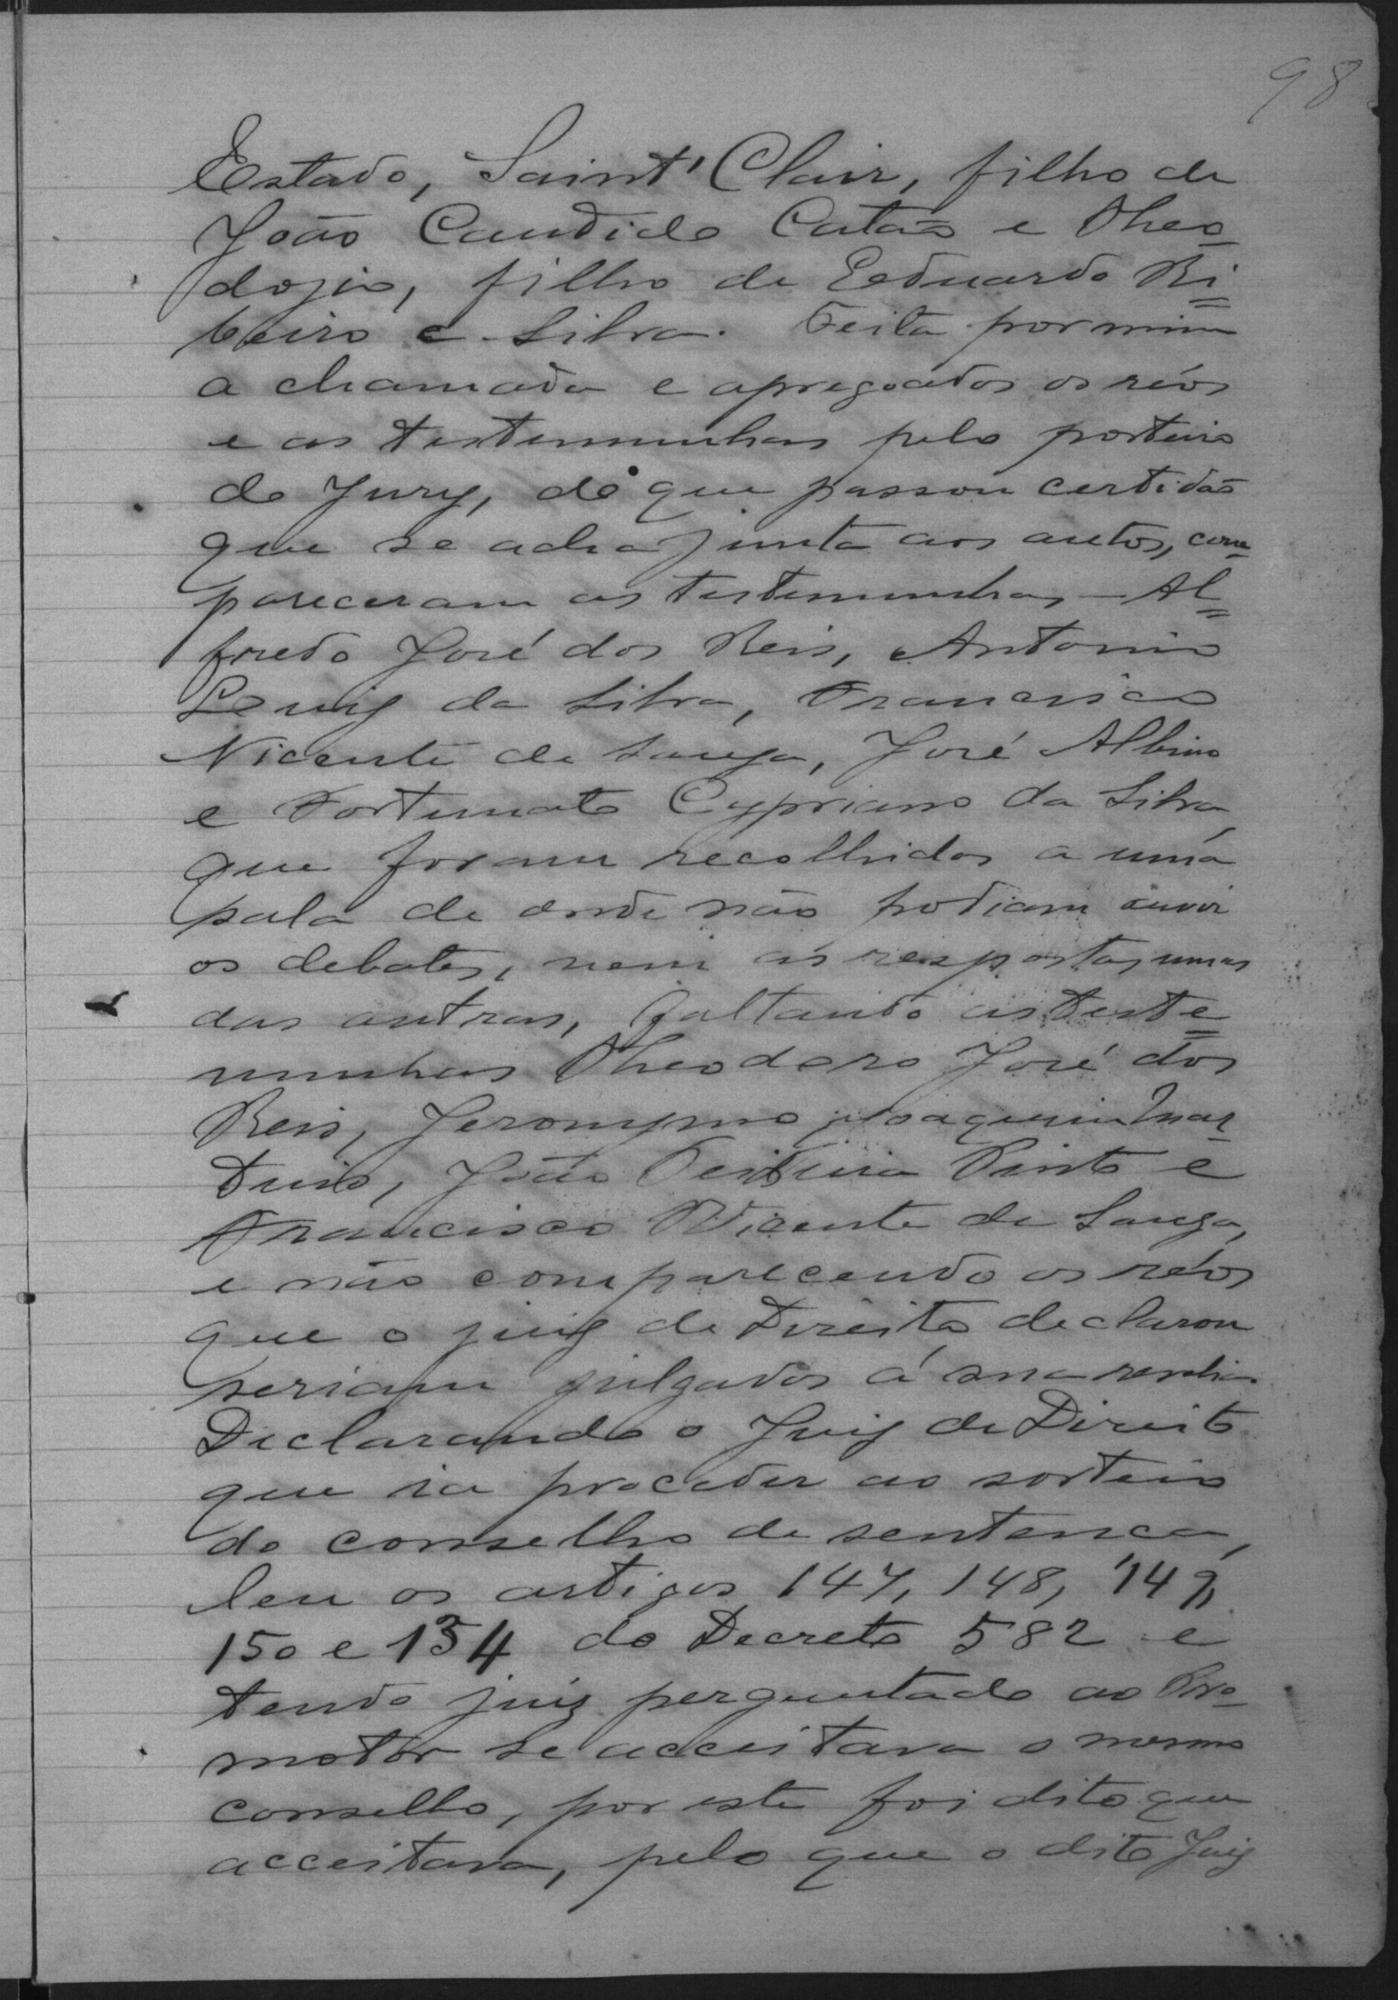 98
Estado, Saint'Clair, filho de
João Candido Catão e Theo-
dozio, filho de Eduardo Ri=
beiro e Silva. Feita por mim
a chamada e apregoados os réos
e as testemunhas pelo porteiro
do Jury, do que passou certidão
que se acha junta aos autos, com-
pareceram as testemunhas - Al=
fredo José dos Reis, Antonio
Luiz da Silva, Francisco
Vicente de Souza, José Albino
e Fortunato Cypriano da Silva
que foram recolhidos a uma
sala de onde não podiam ouvir
os debates, nem as respostas umas
das outras, faltando as teste=
munhas Theodoro José dos
Reis, Jeronymo Joaquim Mar-
tins, João Teixeira Pinto e
Francisco Vicente de Souza,
e não comparecendo os réos
que o juiz de Direito declarou
seriam julgados á sua revelia.
Declarando o Juiz de Direito
que ia proceder ao sorteio
do conselho de sentença,
leu os artigos 147, 148, 149,
150 e 154 do Decreto 582 e
tendo juiz perguntado ao Pro-
motor se acceitava o mesmo
conselho, por este foi dito que
acceitava, pelo que o dito Juiz